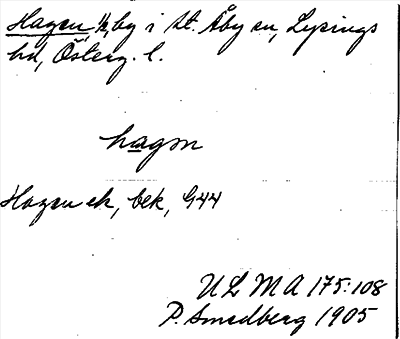 Hagen, ½, by i St. Åby sn, Lysings
hd, Österg. l.
hagɷn
Hagen ek, bek, G44
ULMA 175:108
P. Smedberg 1905